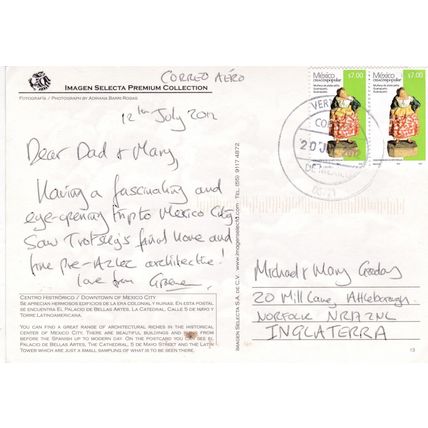 CORREO AÉRO
IMAGEN SELECTA PREMIUM COLLECTION
FOTOGRAFÍA / PHOTOGRAPH BY ADRIANA BARRI ROSAS
12th July 2012
Dear Dad & Mary,
Having a fascinating and
eye-opening trip to Mexico City
Saw Trotsky's final home and
fine Pre-Aztec architecture!
love from
CENTRO HISTÓRICO / DOWNTOWN OF MEXICO CITY
SE APRECIAN HERMOSOS EDIFICIOS DE LA ERA COLONIAL Y RUINAS. EN ESTA POSTAL
SE ENCUENTRA EL PALACIO DE BELLAS ARTES, LA CATEDRAL, CALLE 5 DE MAYO Y
TORRE LATINOAMERICANA.
YOU CAN FIND A GREAT RANGE OF ARCHITECTURAL RICHES IN THE HISTORICAL
CENTER OF MEXICO CITY. THERE ARE BEAUTIFUL BUILDINGS AND FROM
BEFORE THE SPANISH UP TO MODERN DAY. ON THE POSTCARD YOU SEE EL
PALACIO DE BELLAS ARTES, THE CATHEDRAL, 5 DE MAYO STREET AND THE LATIN
TOWER WHICH ARE JUST A SMALL SAMPLING OF WHAT IS TO BE SEEN THERE.
IMAGEN SELECTA S.A. DE C.V. www.imagenselecta.com TEL. (55) 9117 4872
México $7.00
creación popular
México $7.00
creación popular
20 JU
Michael & Mary
20 Mill Lane, Attleborough
NORFOLK NR17 2NL
INGLATERRA
13